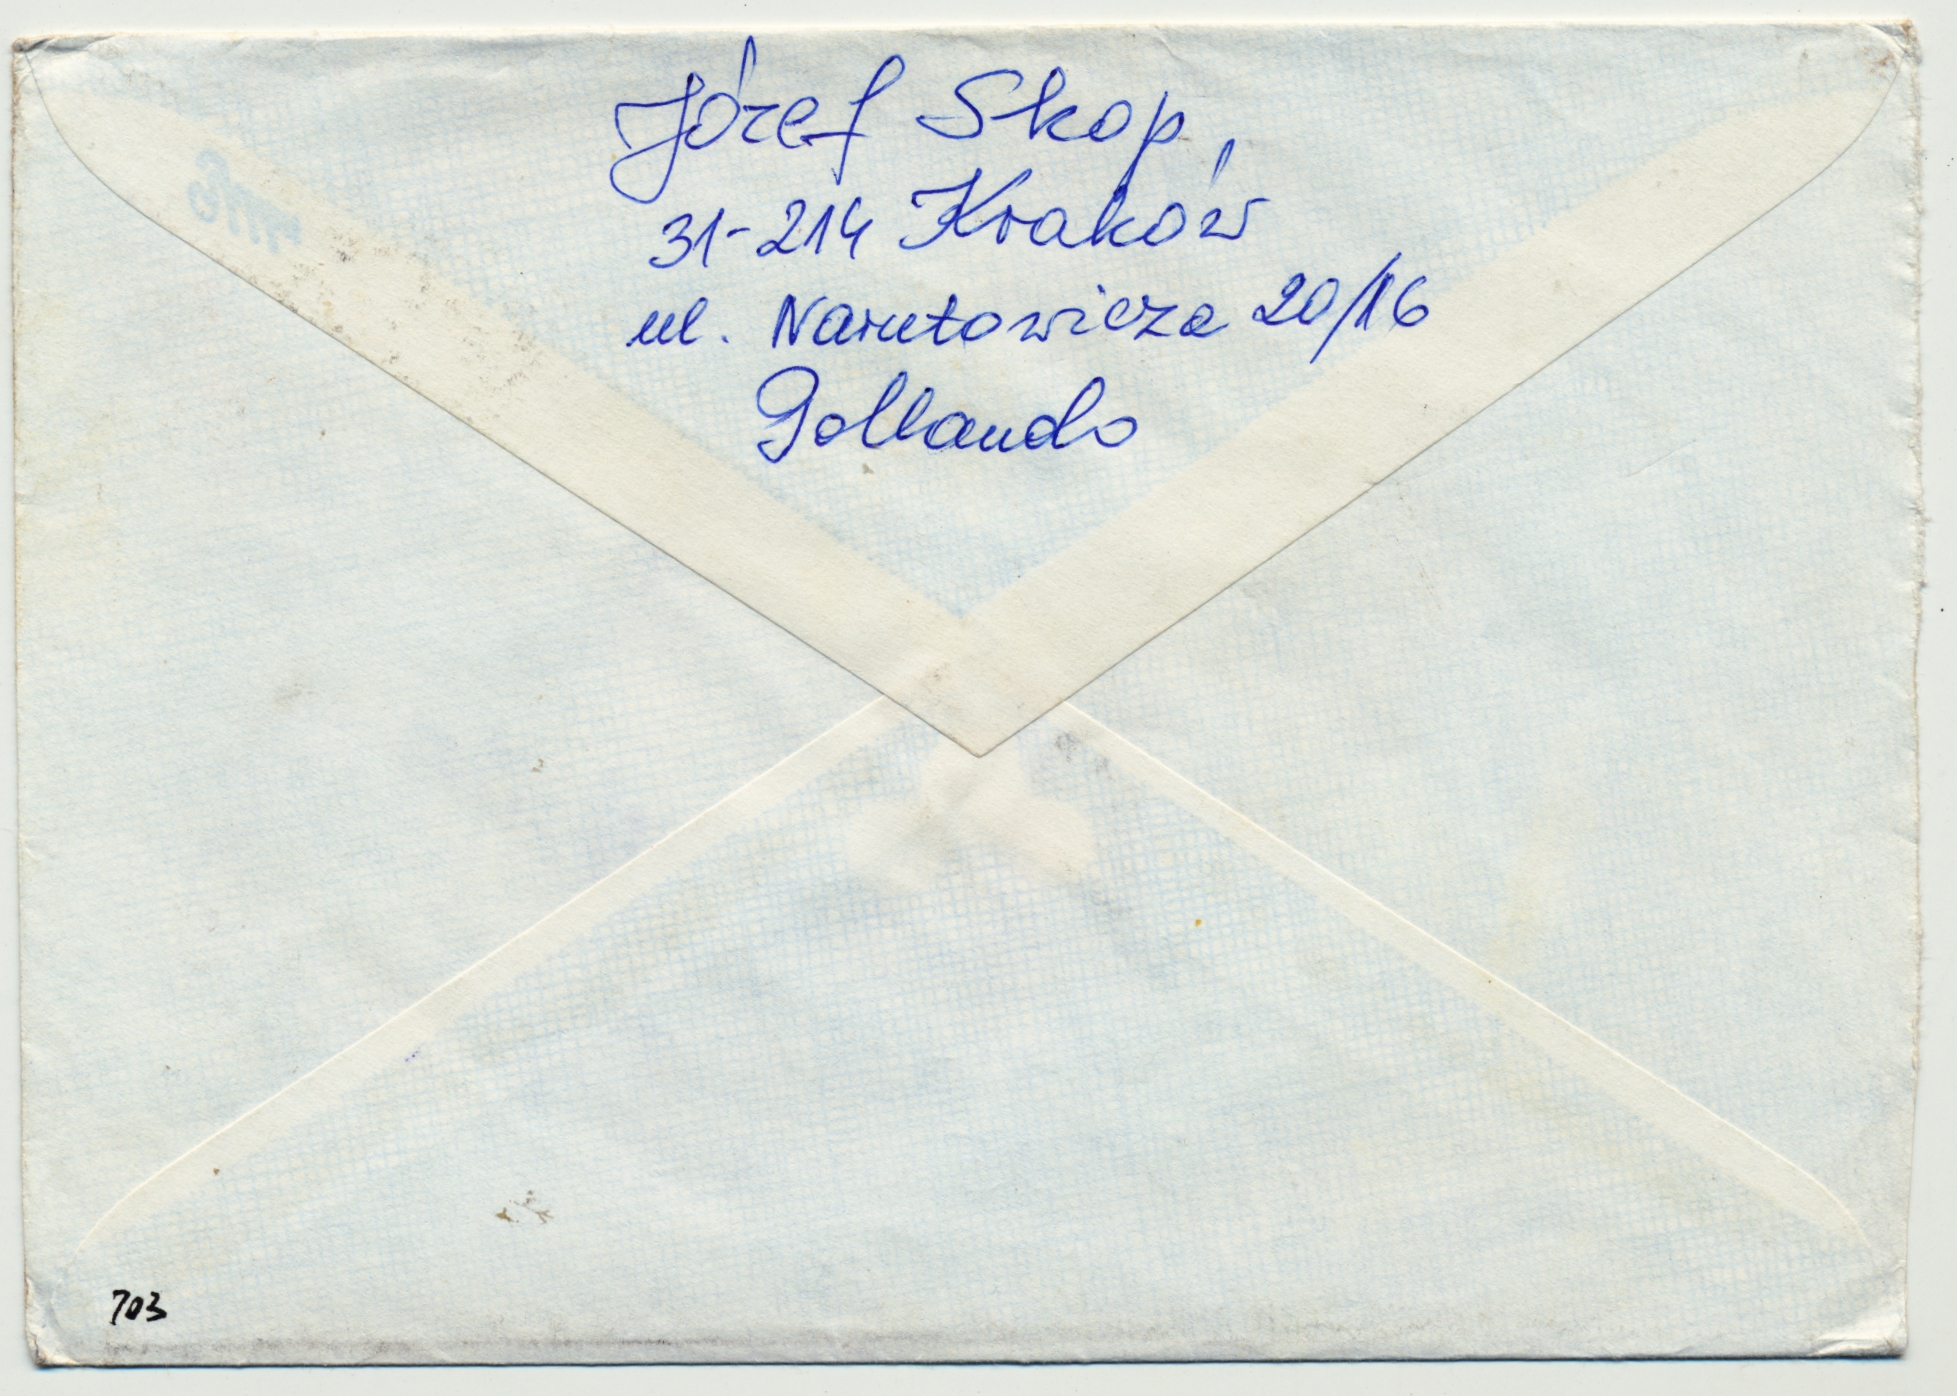 Józef Skop,
31-214 Kraków
ul. Narutowicza 20/16
Pollando
703